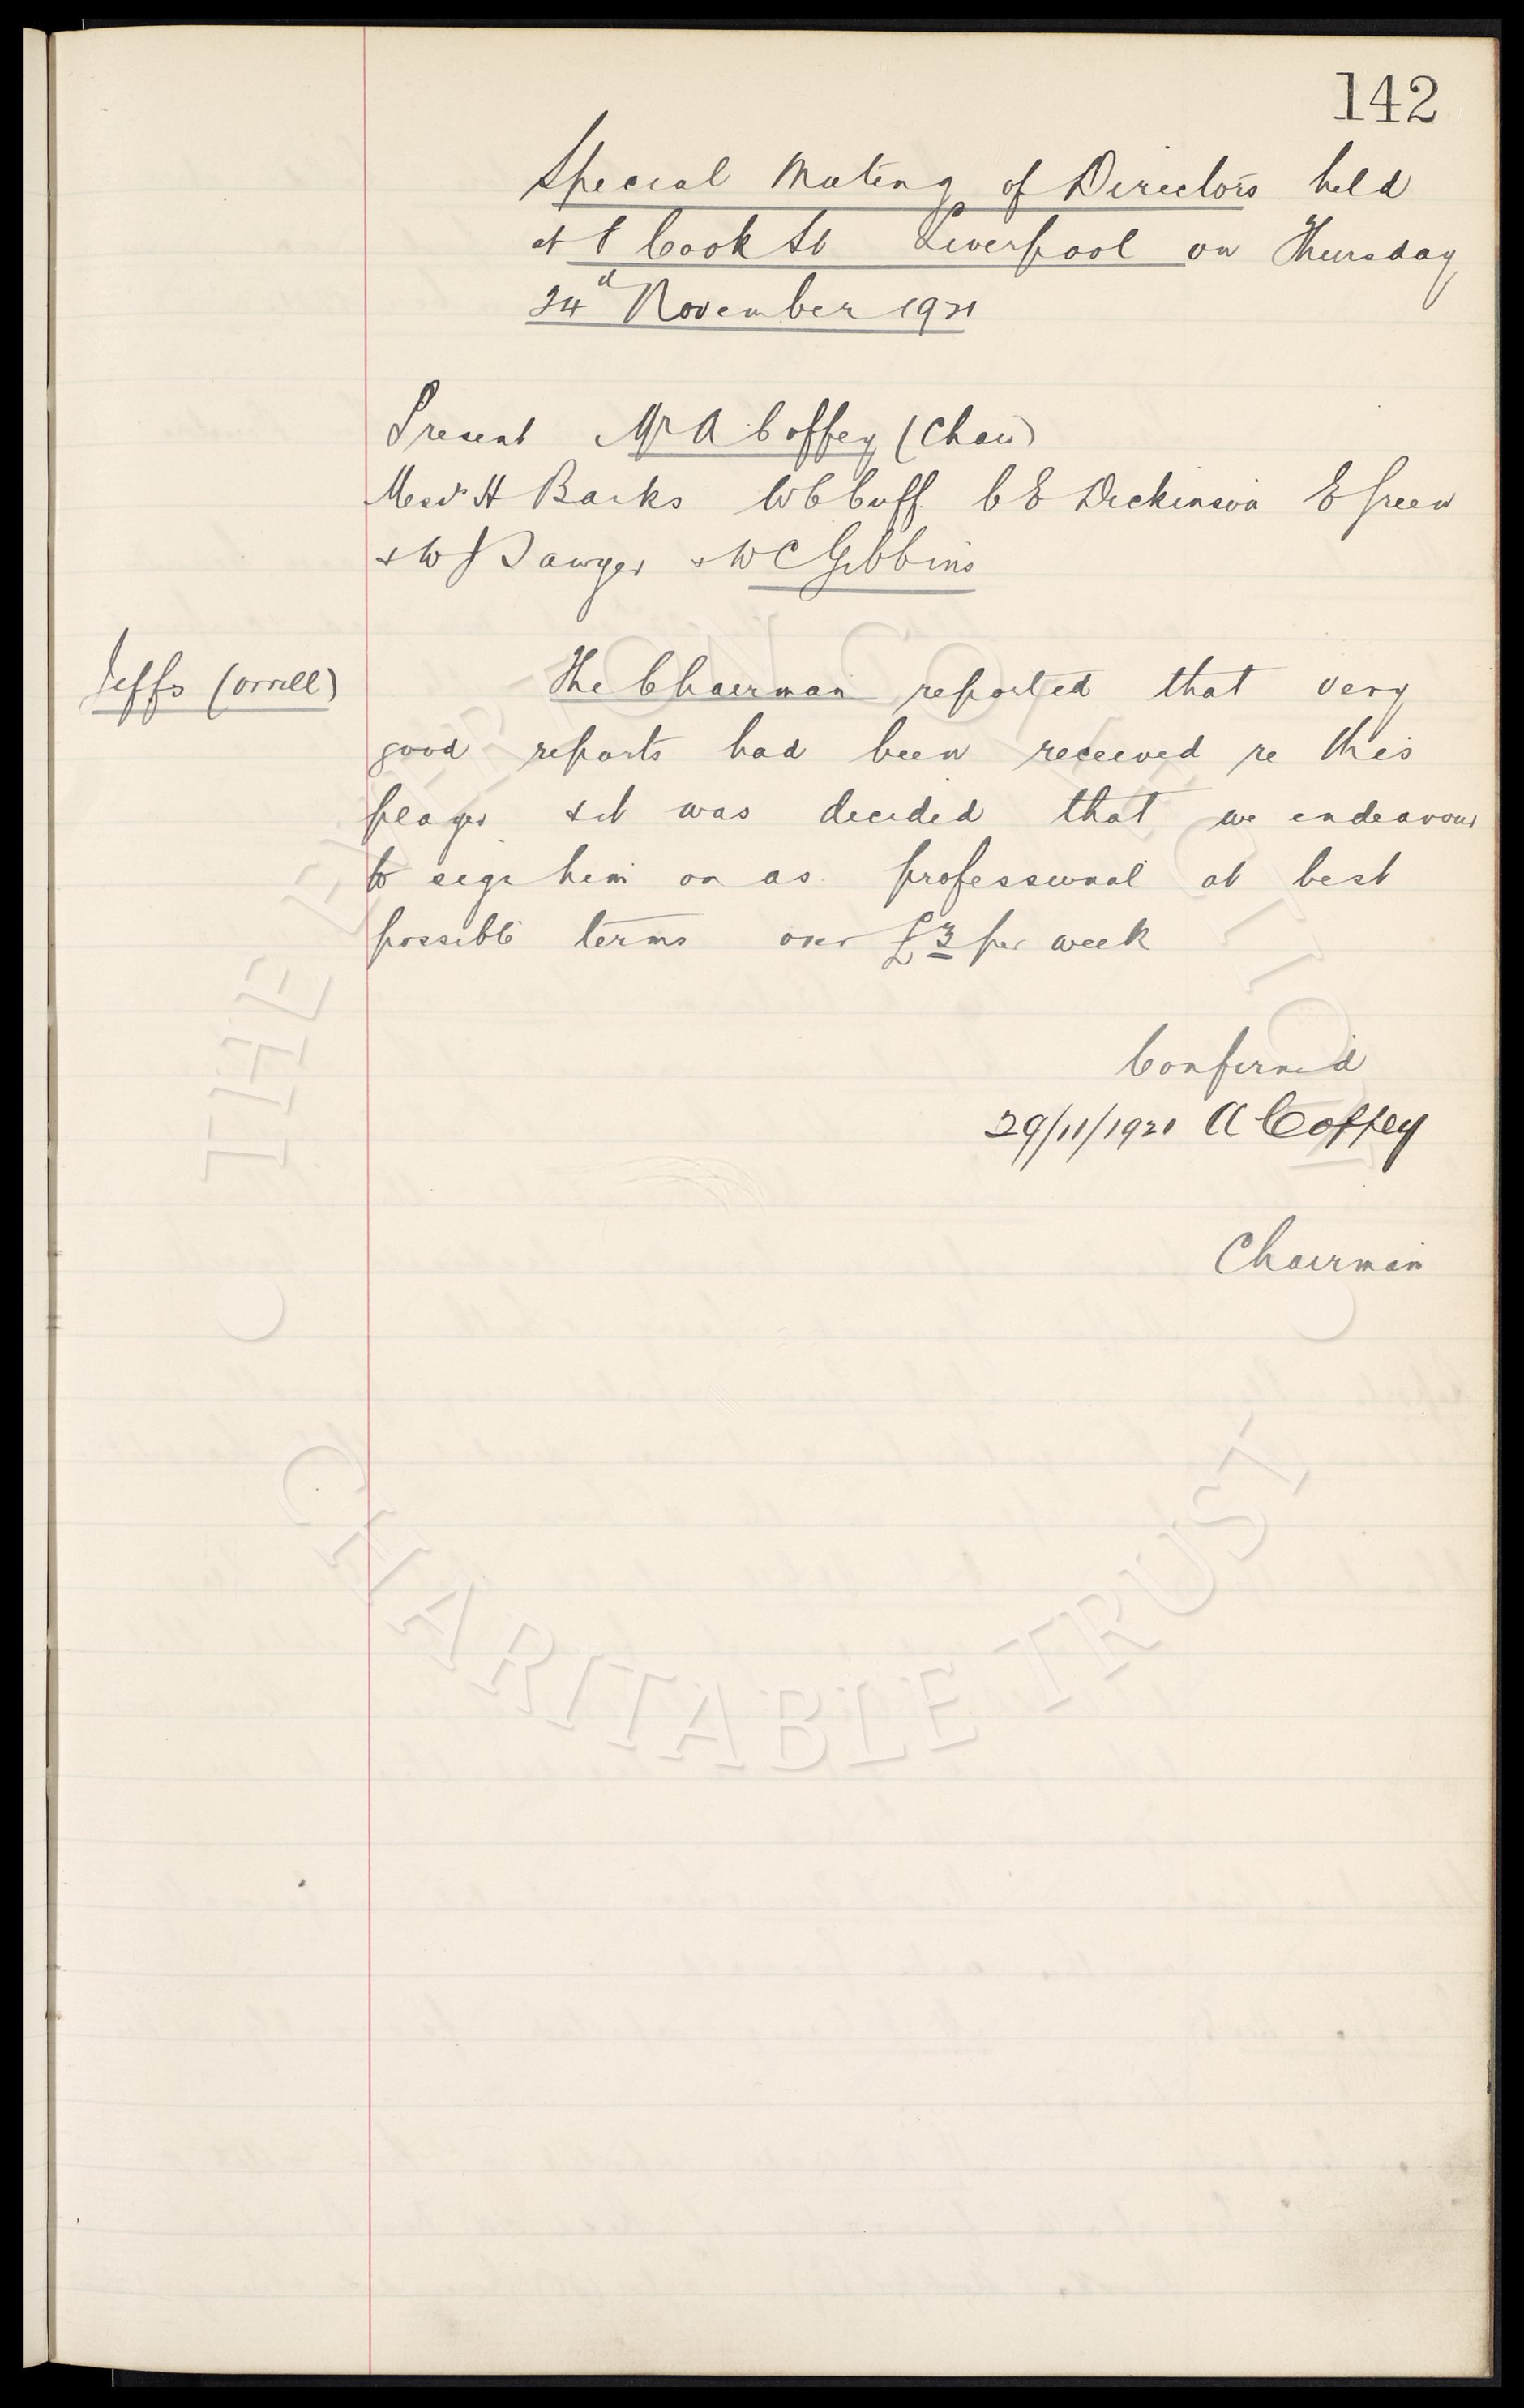 142
Special Meeting of Directors held
at 8 Cook St Liverpool on Thursday
24th November 1921
Present Mr A Coffey (Chair)
Messrs H Banks W C Cuff C E Dickinson E Green
& W J Sawyer & W C Gibbins
Jeffs (Orrell)
The Chairman reported that very
good reports had been received re this
player & it was decided that we endeavour
to sign him on as professional at best
possible terms over £3 per week
Confirmed
29/11/1921 A Coffey
Chairman
THE EVERTON COLLECTION
CHARITABLE TRUST